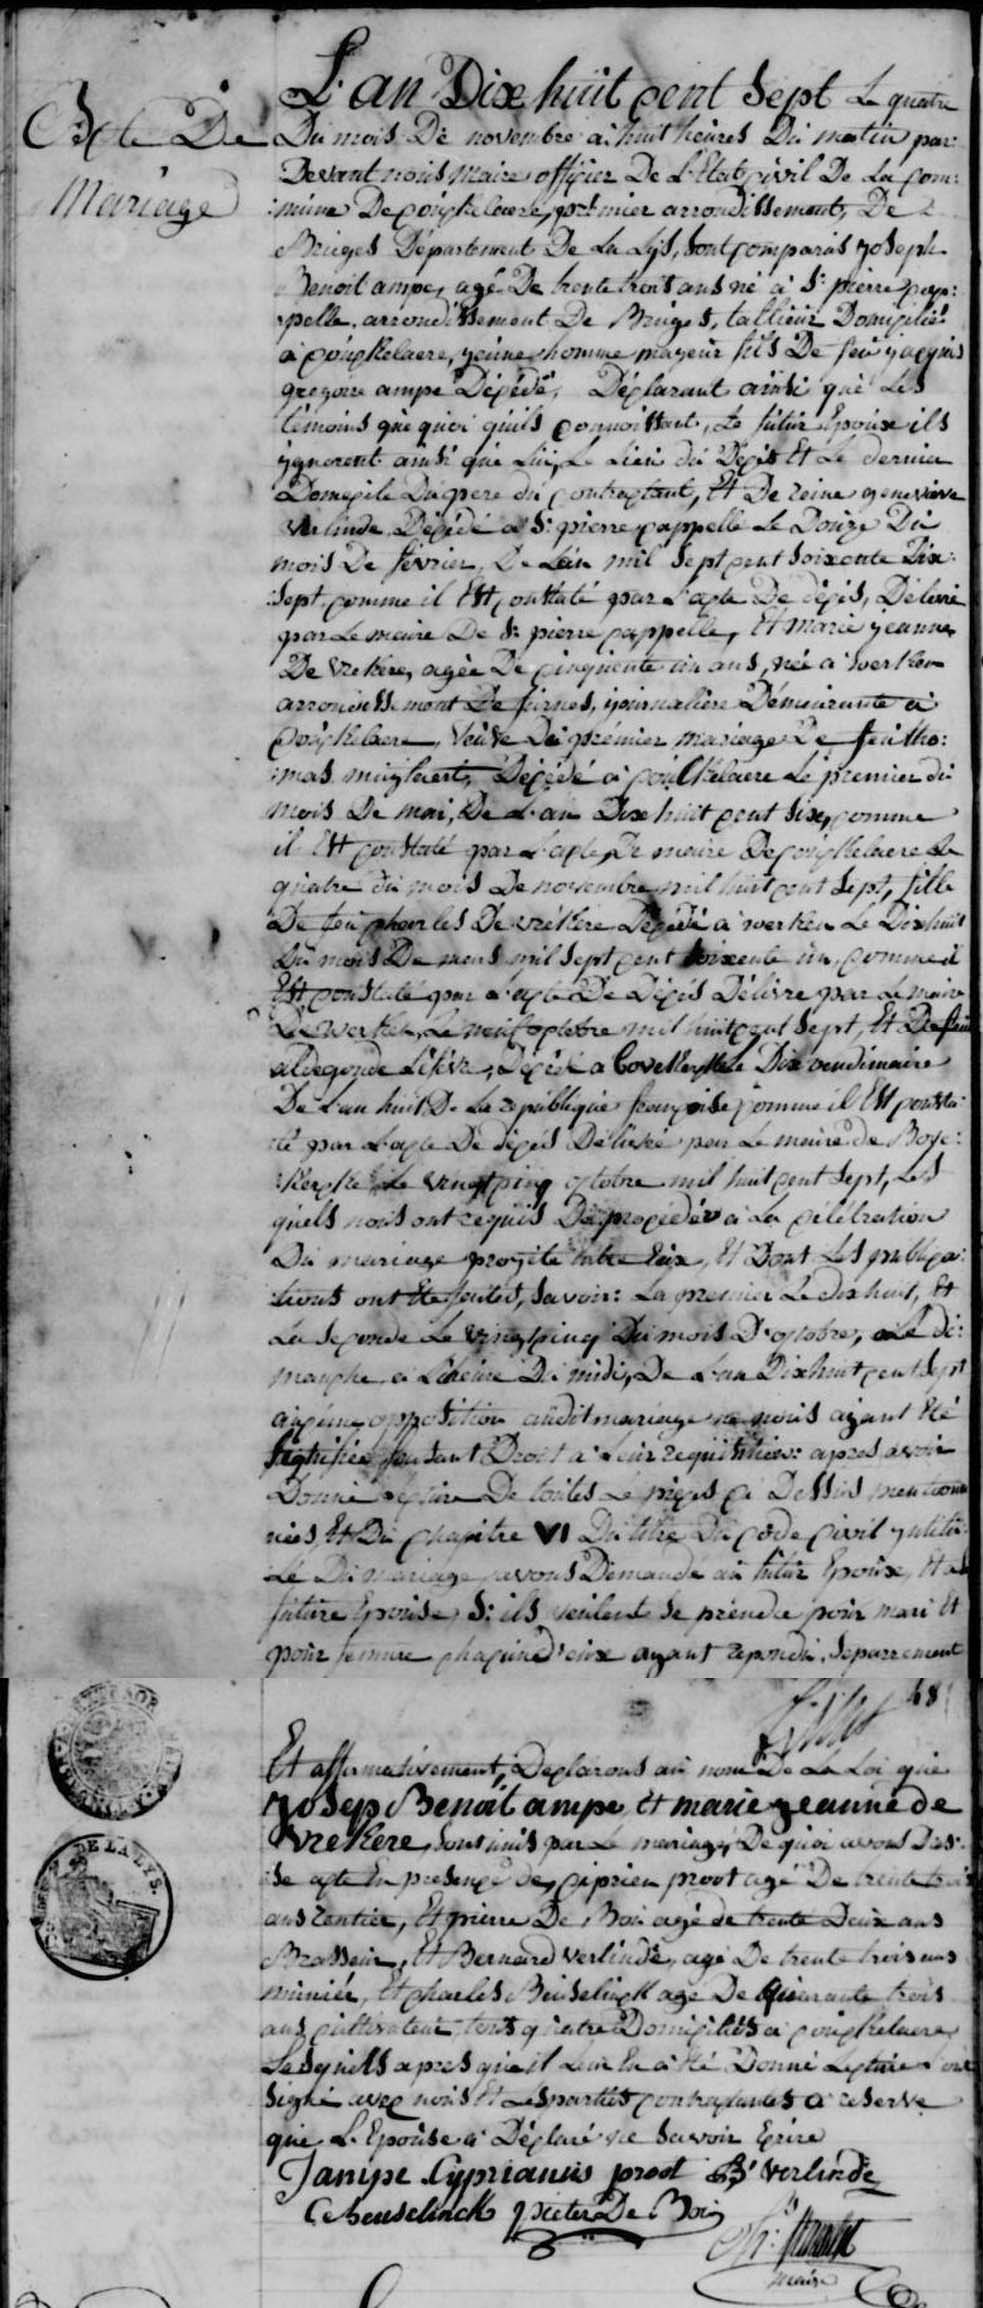 Acte De
Mariage
L'an Dixe huit cent Sept Le quatre
Du mois De novembre a huit heures Du matin par:
Devant nous Maire officier De L'Etat civil De La com:
:mune De couckelaere, premier arrondissement, De
Bruges Département De La Lys, sont comparus Joseph
Benoit ampe, agé De trente trois ans né à St pierre cap:
:pelle, arrondissement De Bruges, tallieur Domicilié
a couckelaere, jeune homme majeur fils De feu jacques
gregoire ampe Décédé, Déclarant ainsi que Les
témoins que quoi quils connoissant, Le futur Epoux ils
ygnorent ainsi que Lui, Le Lieu du Décés Et Le dernier
Domicile Du pere du contractant, Et De reine genevieve
verlinde Décédé a St pierre cappelle Le Douze Du
mois De fevrier, De L'an mil sept cent soixente Dix
:sept, comme il Est constaté par L'acte De décés, Délivré
par Le maire De St pierre cappelle, Et Marie jeanne
De vrekere, agée De cinquente un ans, née a werken
arrondissement De furnes, journaliere Démeurante a
Couckelaere, Veuve Du prémier mariage De feu tho:
:mas muylaert, Décédé a couckelaere Le premier du
mois De mai, De L'an Dixe huit cent six, comme
il Est constaté par L'acte, De maire De couckelaere Le
quatre du mois De novembre mil huit cent sept, fille
De feu charles De vrékere Décédé a werken Le Dixhuit
Du mois De mars mil sept cent soixente un, comme il
Est constaté par L'acte De Décés Délivre par Le maire
De werken, Le neuf octobre mil huit cent sept, Et De feue
aldegonde Lefévre, Décédé a Bovekerke Le Dix vendimaire
De L'an huit De La republique françoise comme il Est consta:
té par L'acte De décés Délivré par Le maire de Bove:
:kercke Le vingt cinq octobre mil huit cent sept, Les
quels nous ont requis De procéder a La célébration
Du mariage projeté entre Eux, Et Dont Les publica:
:tions ont Eté faites, savoir: La premier Le dix huit, Et
La seconde Le vingt cinq Du mois D'octobre, Le di:
manche a L'heure Du midi, De L'an Dixe huit cent sept
aucune opposition au dit mariage ne nous ayant Eté
signifiée faisant Droit a Leur requisition: apres avoir
Donné Lecture De toutes Le pieces ci Dessus mention
nées Et Du Chapitre VI Du titre Du code civil yntitu:
Lé Du mariage, avons Demandé au futur Epoux, Et a la
future Epouse, S'ils veulent se prendre pour mari Et
pour femme chacun d'eux ayant repondu, Separrement
48
Et affirmativement, Déclarons au nom De La Loi que
Josep Benoit ampe Et marie jeanne de
Vrekere, sont unis par Le mariage, De quoi avons Dres:
:se acte En presence de, ciprien provt agé De trente trois
ans rentier, Et pierre De Boi agé de trente Deux ans
Brasseur, Et Bernard verlinde, agé De trente trois ans
munier, Et charles Beuselinck age De Quarante trois
ans cultivateur tous quatre Domiciliés a couckelaere
Lesquells apres qu'il Leur En a Eté Donné Lecture ont
signé avec nous Et Les parties contractantes a reserve
que L'Epouse a Déclaré ne savoir Ecrire
J ampe Cyprianus provt B: Verlinde
C Beuselinck pieter De Boi
maire
DE LA LYS.